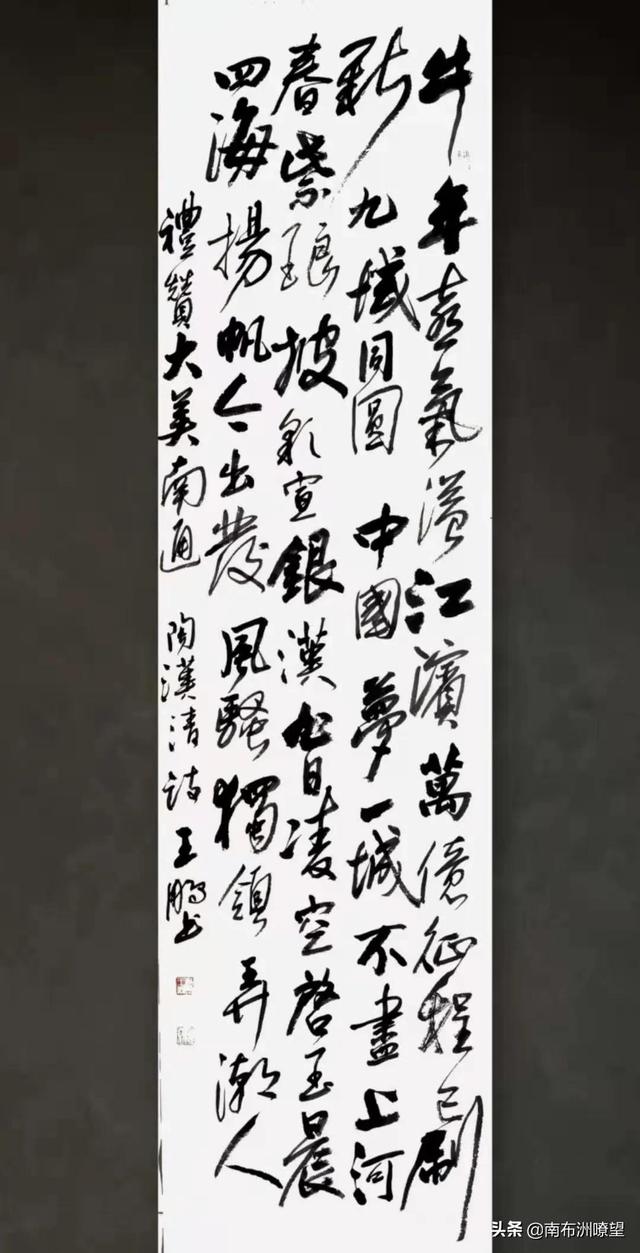 牛年喜氣溢江濱萬億征程已刷
新九域同圓中國夢一城不盡上河
春紫琅披彩宣銀漢旭日凌空啓玉晨
四海揚帆今出發風騷獨領弄潮人
禮贊大美南通 陶漢清詩王鵬书
头条 @南布洲嘹望